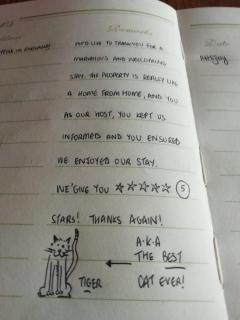 Remarks
Date
WE'D LIKE TO THANK YOU FOR A
MARVELOUS AND WELCOMING
STAY. THE PROPERTY IS REALLY LIKE
A HOME FROM HOME, AND YOU
AS OUR HOST, YOU KEPT US
INFORMED AND YOU ENSURED
WE ENJOYED OUR STAY.
WE'GIVE YOU ☆☆☆☆☆ (5)
STARS! THANKS AGAIN!
A.K.A
THE BEST
CAT EVER!
TIGER